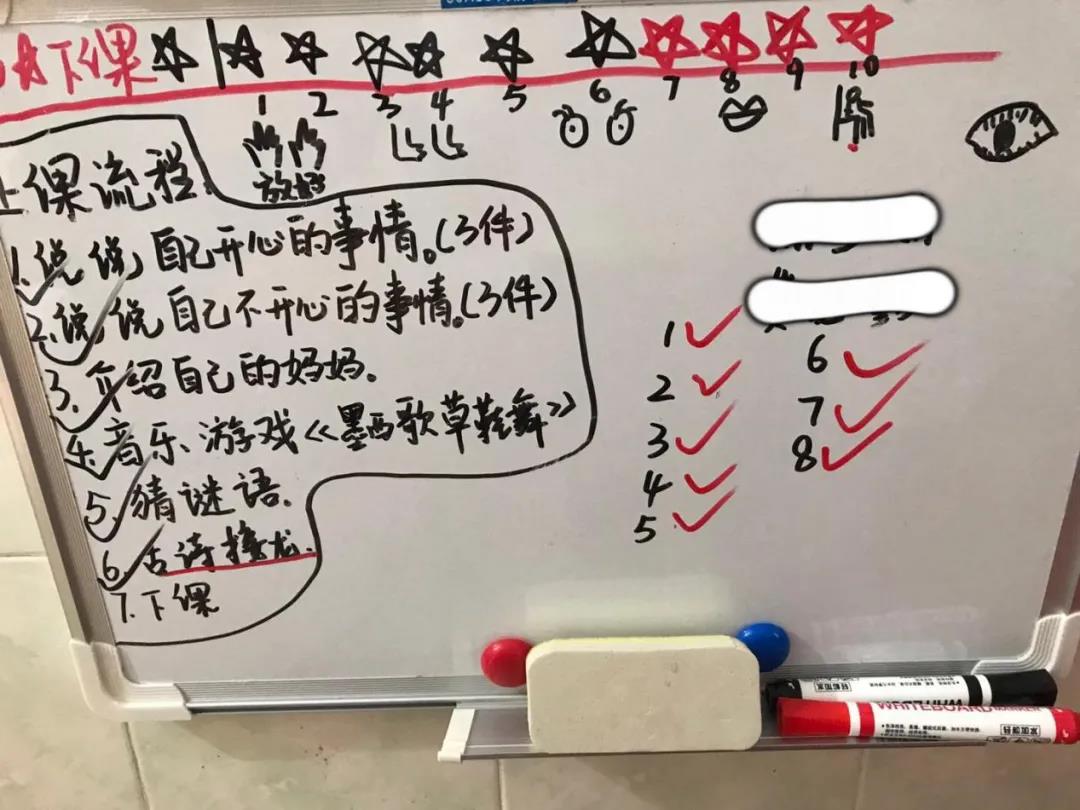 下课
1 2 3 4 5 6 7 8 9 10
放好
上课流程.
1.说说自己开心的事情。(3件)
2.说说自己不开心的事情。(3件)
3.介绍自己的妈妈.
4.音乐游戏《墨西歌草鞋舞》
5.猜谜语.
6.古诗接龙.
7.下课
1
2
3
4
5
6
7
8
WHITEBOARD MARKER
轻松加水